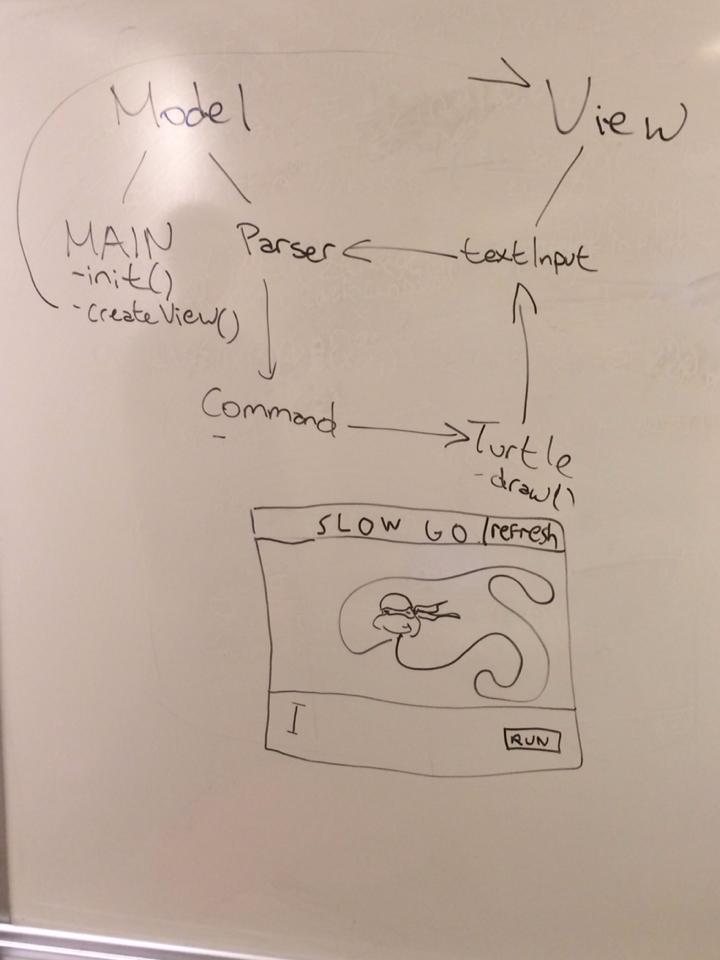 Model
View
MAIN
-init()
-createView()
Parser
textInput
Command
-
Turtle
-draw()
SLOW GO
refresh
I
RUN